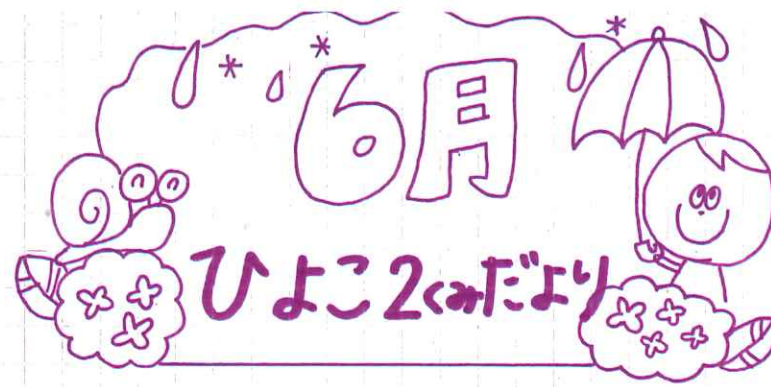 6月
ひよこ2くみだより